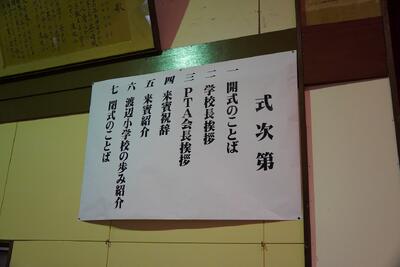 式次第
一 開式のことば
二 学校長挨拶
三 PTA会長挨拶
四 来賓祝辞
五 来賓紹介
六 渡辺小学校の歩み紹介
七 閉式のことば